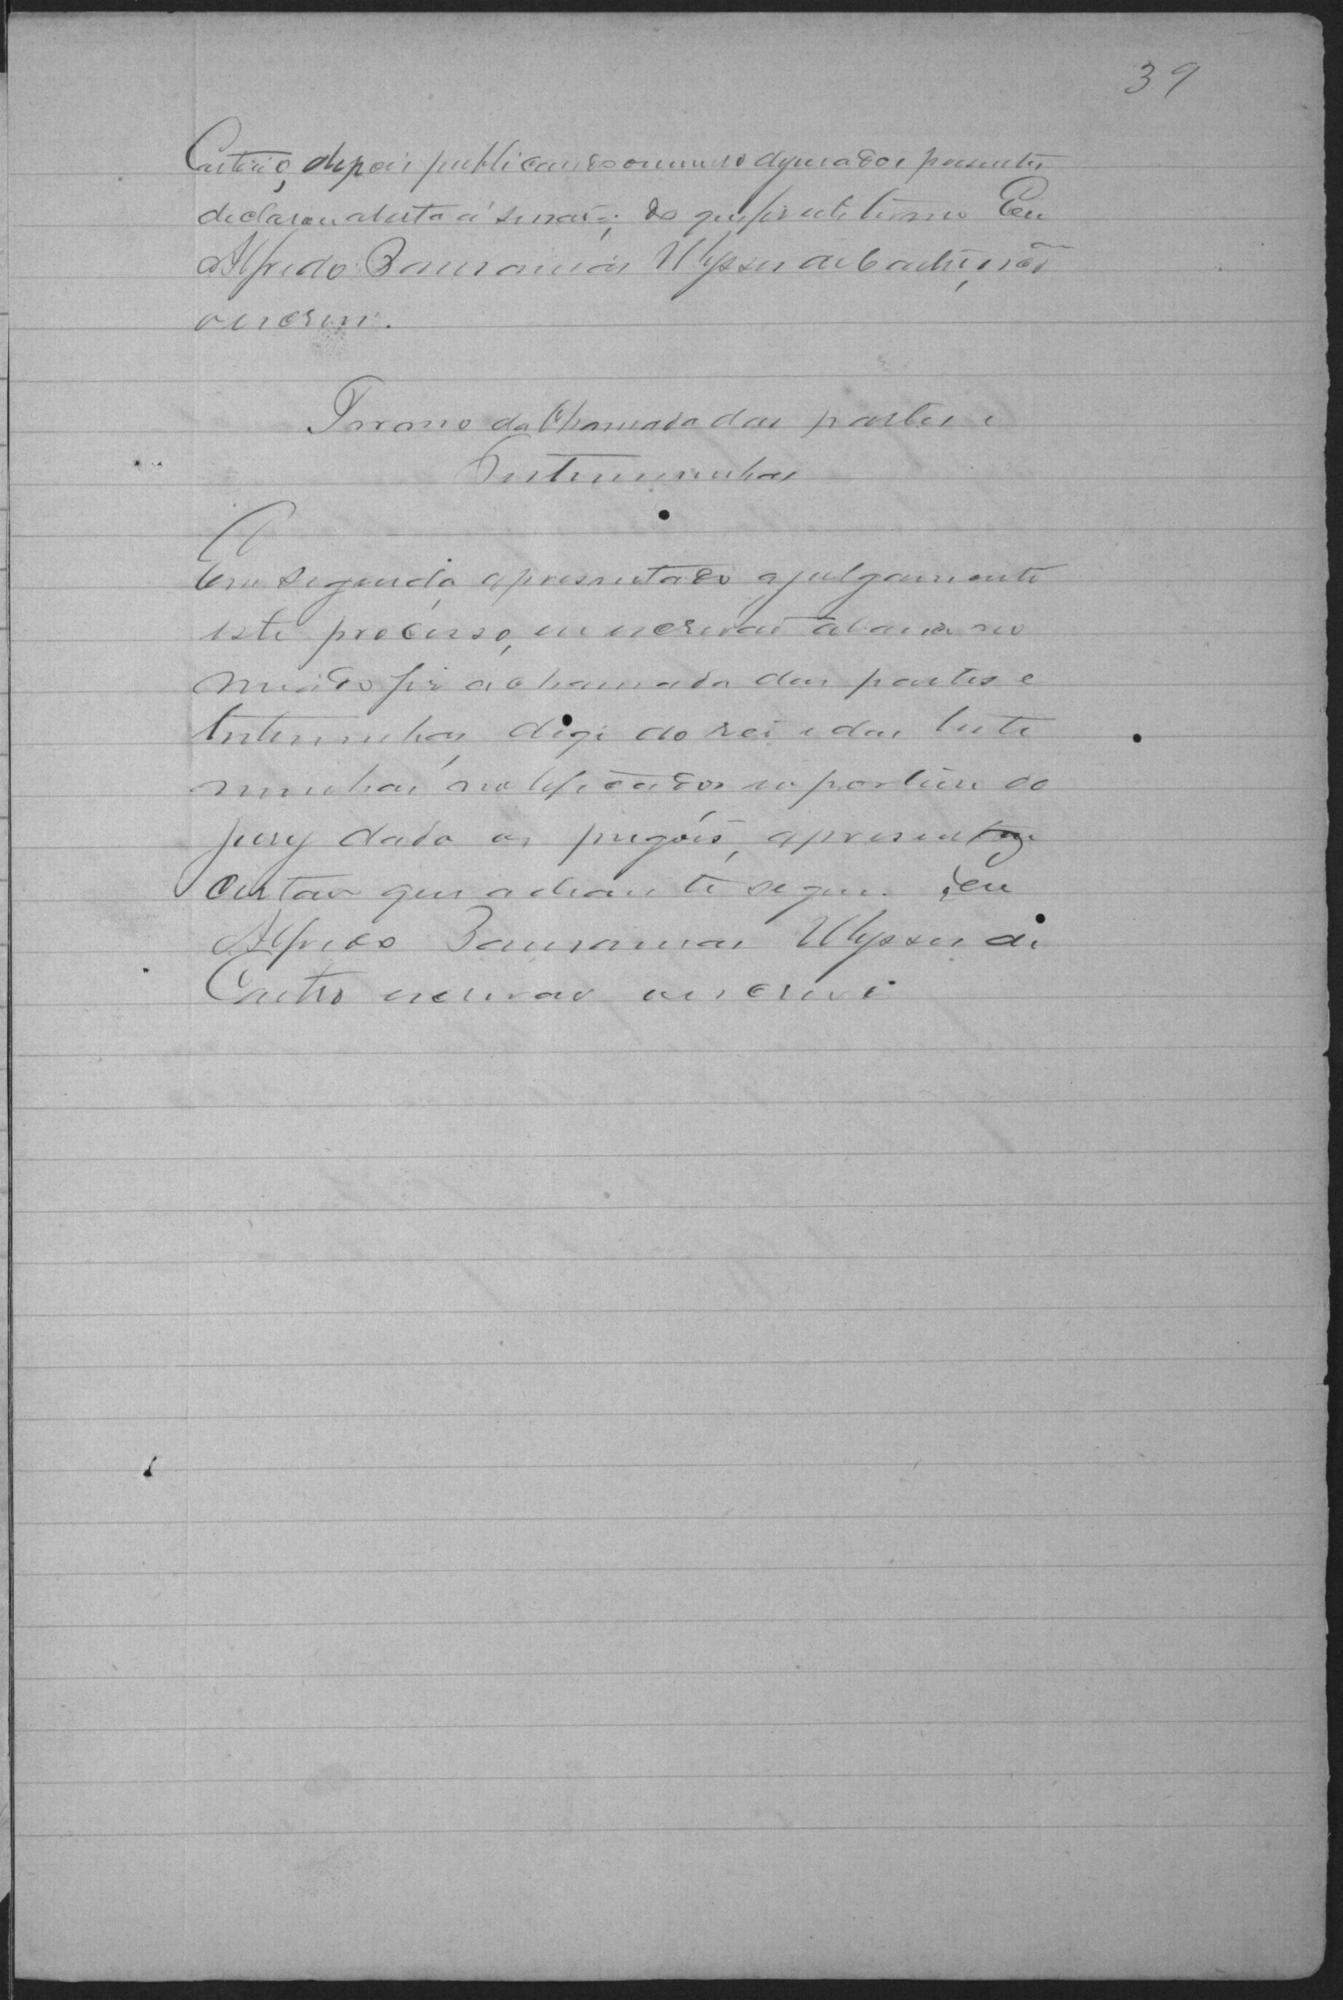 39
depois publicando o numero de jurados presentes
declarou aberta a sessão; do que fiz este termo Eu
Alfredo Ulysses de Castro, escrivão
o escrevi.
Termo da Chamada das partes e
testemunhas
Em seguida, apresentado a julgamento
este processo, eu escrivão abaixo no
meiado fiz a chamada das partes e
testemunhas, digo do reo e das teste
munhas notificadas e o porteiro do
jury dado os pregões, apresentou
certão que adiante segue. Eu
Alfredo Ulysses de
Castro escrivão o escrevi